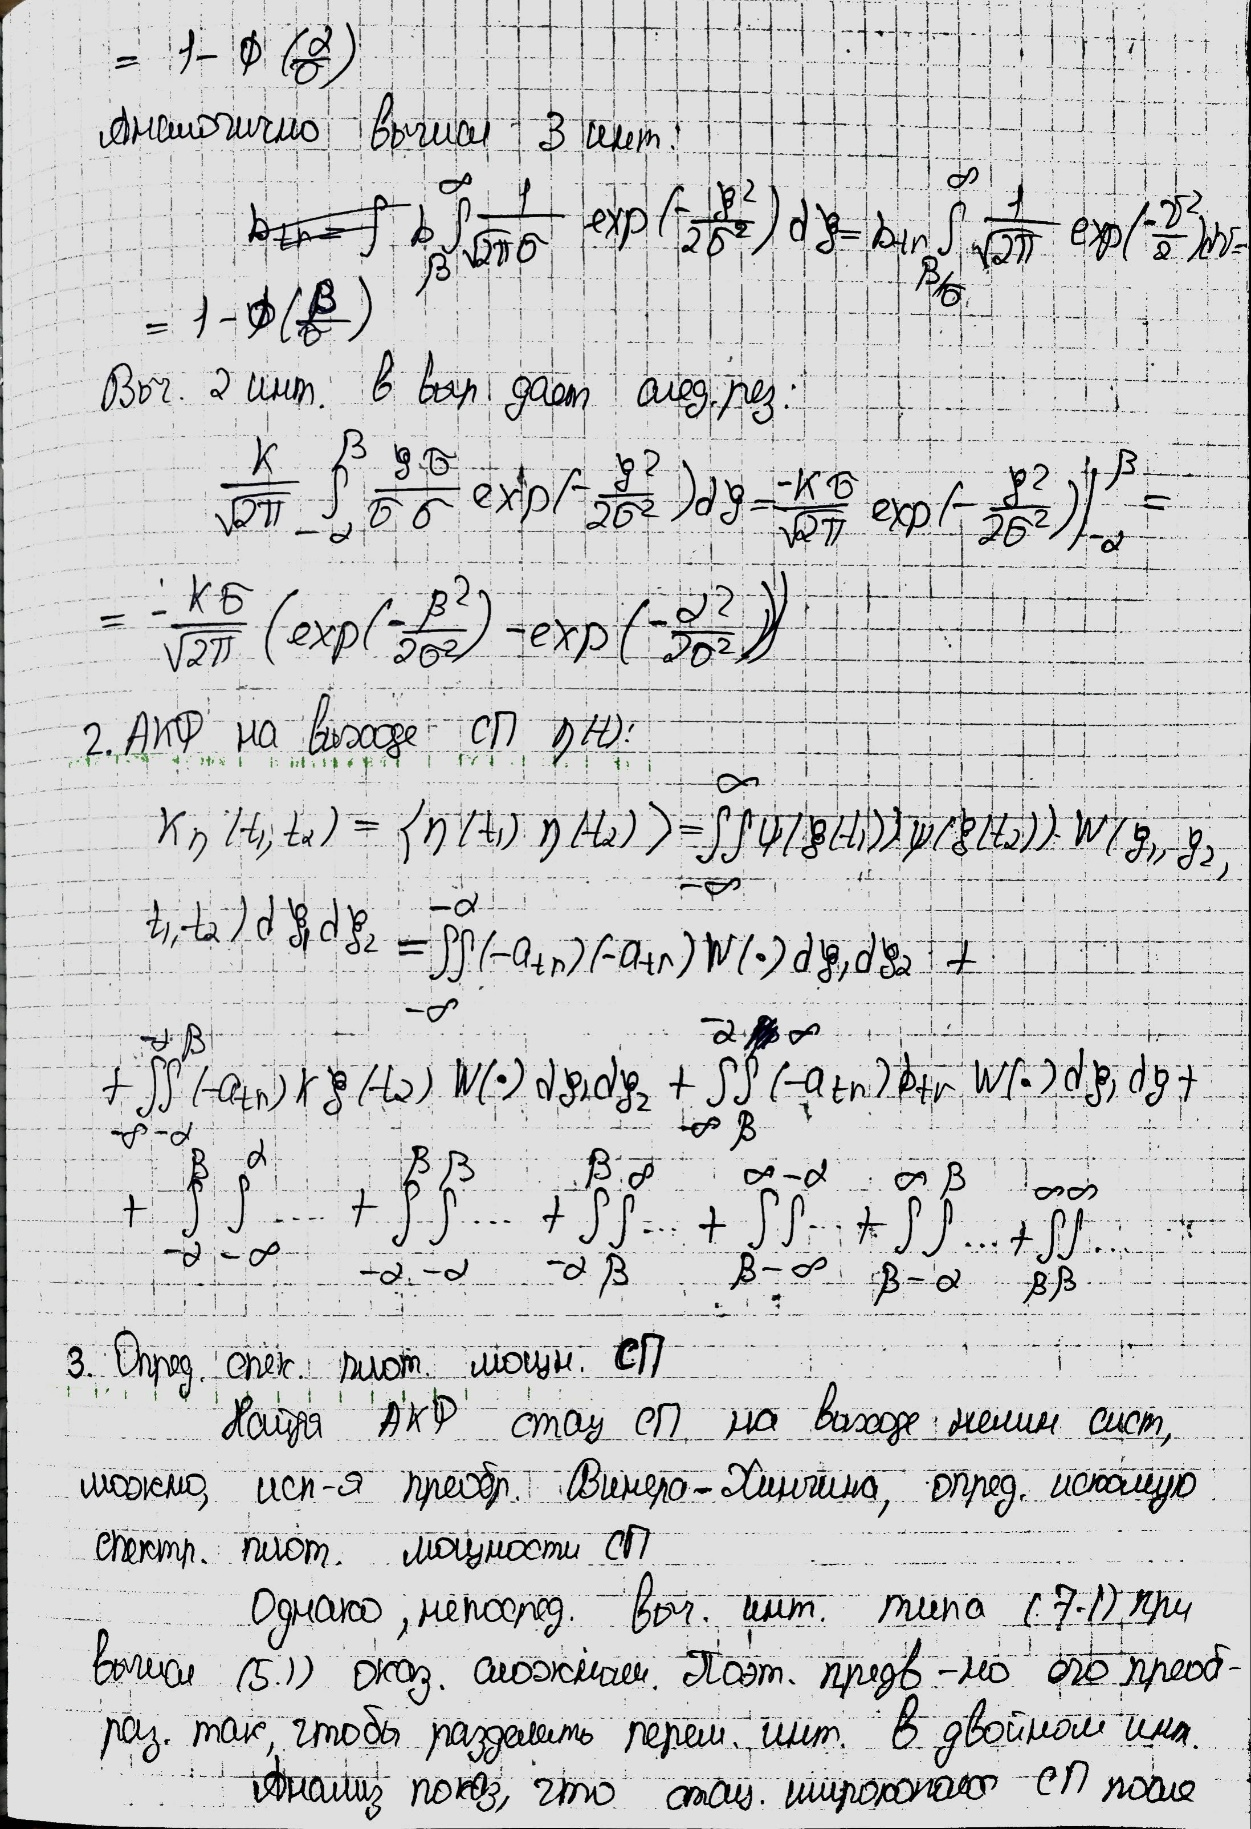 = 1 - Φ(α/σ)
Аналогично вычисл 3 инт:
b ∫_β^∞ 1/(√2π σ) exp(-ξ²/2σ²) dξ = b_tr ∫_{β/σ}^∞ 1/√2π exp(-v²/2) dv =
= 1 - Φ(β/σ)
Выч. 2 инт. в выр дает след. рез:
K/√2π ∫_{-α}^β ξσ/σσ exp(-ξ²/2σ²) dξ = -Kσ/√2π exp(-ξ²/2σ²)|_{-α}^β =
= -Kσ/√2π (exp(-β²/2σ²) - exp(-α²/2σ²))
2. АКФ на выходе СП η(t):
K_η(t₁, t₂) = ⟨η(t₁) η(t₂)⟩ = ∫∫_{-∞}^∞ ψ(ξ(t₁)) ψ(ξ(t₂)) · W(ξ₁, ξ₂,
t₁, t₂) dξ₁ dξ₂ = ∫∫_{-∞}^{-α} (-a_tr)(-a_tr) W(·) dξ₁ dξ₂ +
+ ∫_{-∞}^{-α} ∫_{-α}^β (-a_tr) K ξ(t₂) W(·) dξ₁ dξ₂ + ∫_{-∞}^{-α} ∫_β^∞ (-a_tr) b_tr W(·) dξ₁ dξ +
+ ∫_{-α}^β ∫_{-∞}^α .... + ∫_{-α}^β ∫_{-α}^β ... + ∫_{-α}^β ∫_β^∞ ... + ∫_β^∞ ∫_{-∞}^{-α} ... + ∫_β^∞ ∫_{-α}^β ... + ∫_β^∞ ∫_β^∞ ...
3. Опред. спек. плот. мощн. СП
Найдя АКФ стац СП на выходе нелин сист,
можно, исп-я преобр. Винера-Хинчина, опред. искомую
спектр. плот. мощности СП
Однако, непосред. выч. инт. типа (7.1) при
вычисл (5.1) оказ. сложным. Поэт. предв-но его преоб-
раз. так, чтобы разделить перем. инт. в двойном инт.
Анализ показ, что стац. широкопол СП после